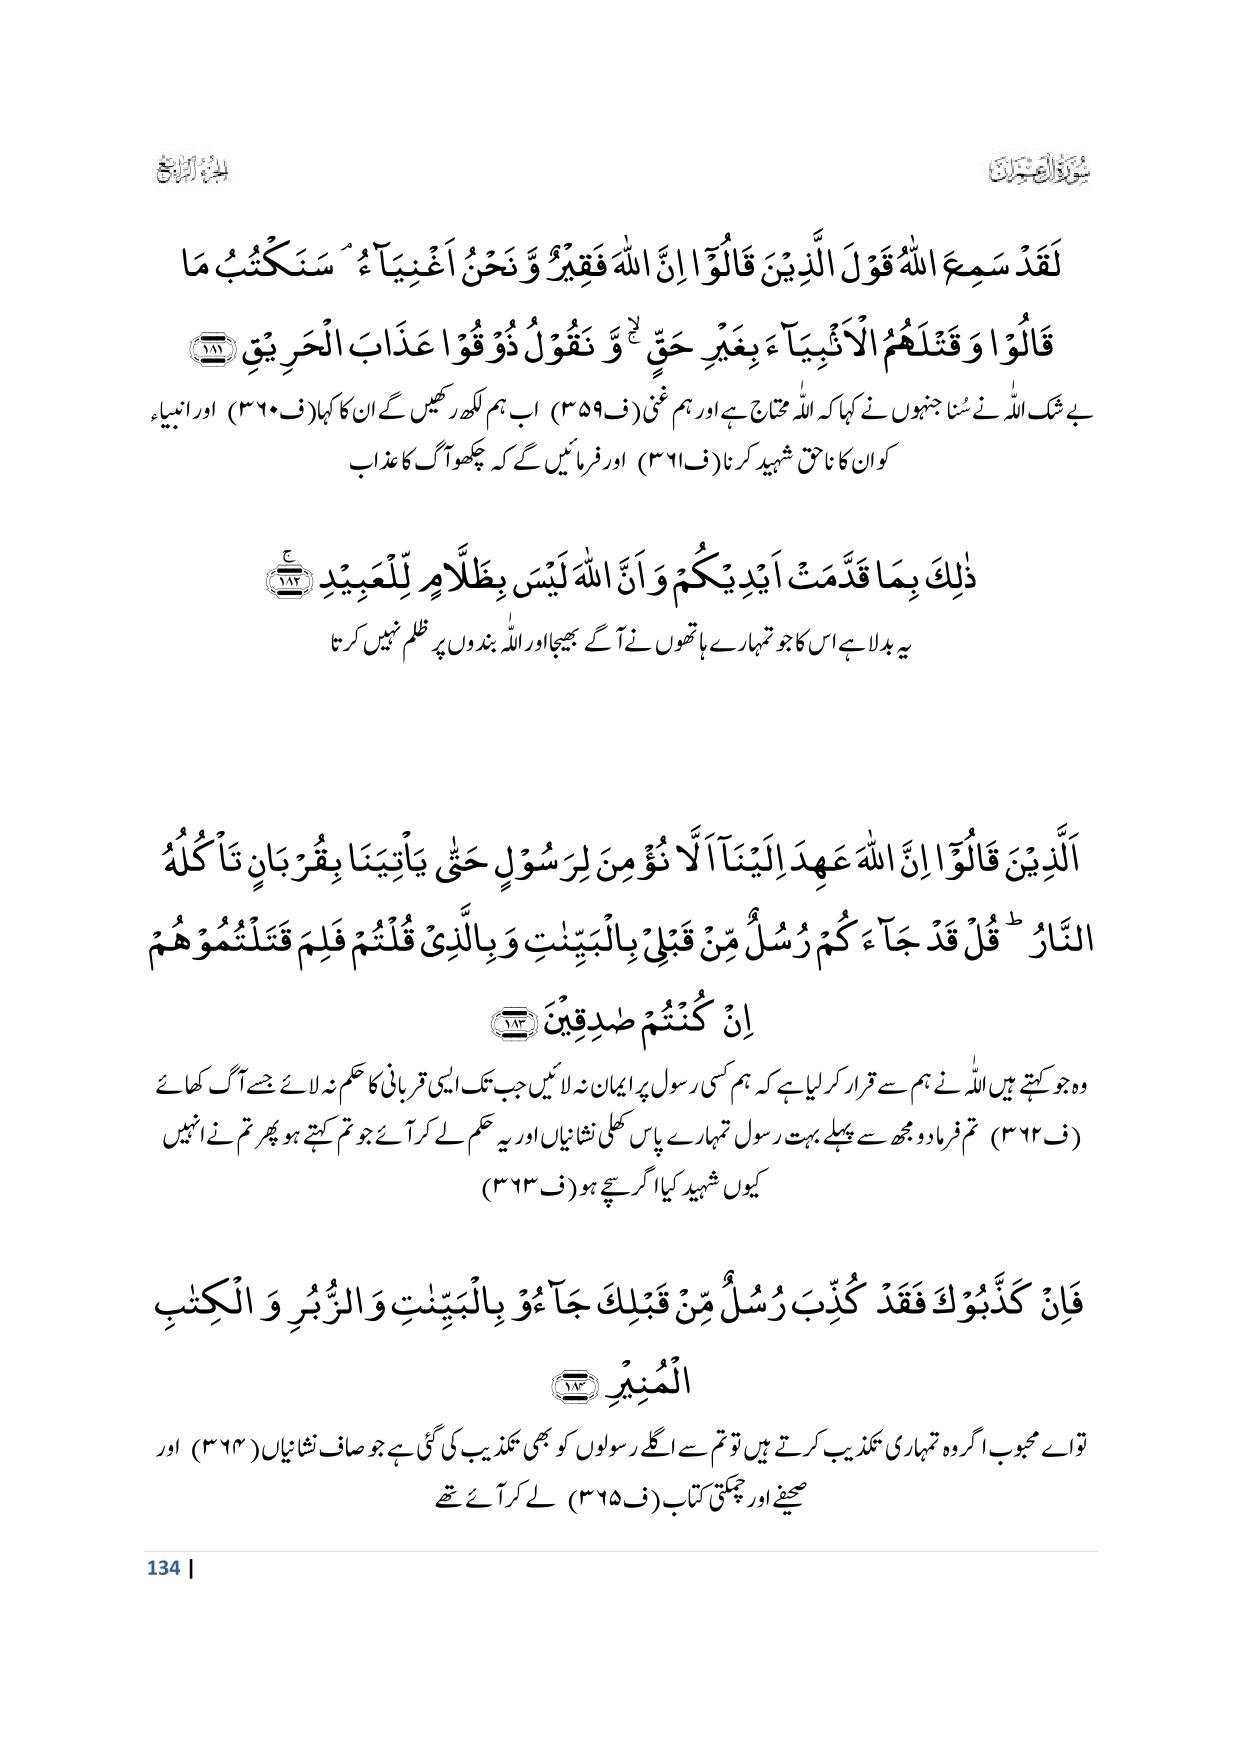 سُوْرَةُ اٰلِ عِمْرَان
الجزء الرّابع
لَقَدْ سَمِعَ اللّٰهُ قَوْلَ الَّذِيْنَ قَالُوْۤا اِنَّ اللّٰهَ فَقِيْرٌ وَّ نَحْنُ اَغْنِيَآءُ ۘ سَنَكْتُبُ مَا
قَالُوْا وَ قَتْلَهُمُ الْاَنْۢبِيَآءَ بِغَيْرِ حَقٍّ ۙۚ وَّ نَقُوْلُ ذُوْقُوْا عَذَابَ الْحَرِيْقِ ﴿۱۸۱﴾
بے شک اللّٰہ نے سُنا جنہوں نے کہا کہ اللّٰہ محتاج ہے اور ہم غنی (ف۳۵۹) اب ہم لکھ رکھیں گے ان کا کہا (ف۳۶۰) اور انبیاء
کو ان کا ناحق شہید کرنا (ف۳۶۱) اور فرمائیں گے کہ چکھو آگ کا عذاب
ذٰلِكَ بِمَا قَدَّمَتْ اَيْدِيْكُمْ وَ اَنَّ اللّٰهَ لَيْسَ بِظَلَّامٍ لِّلْعَبِيْدِ ﴿۱۸۲﴾ۚ
یہ بدلا ہے اس کا جو تمہارے ہاتھوں نے آگے بھیجا اور اللّٰہ بندوں پر ظلم نہیں کرتا
اَلَّذِيْنَ قَالُوْۤا اِنَّ اللّٰهَ عَهِدَ اِلَيْنَاۤ اَلَّا نُؤْمِنَ لِرَسُوْلٍ حَتّٰى يَاْتِيَنَا بِقُرْبَانٍ تَاْكُلُهُ
النَّارُ ؕ قُلْ قَدْ جَآءَكُمْ رُسُلٌ مِّنْ قَبْلِيْ بِالْبَيِّنٰتِ وَ بِالَّذِيْ قُلْتُمْ فَلِمَ قَتَلْتُمُوْهُمْ
اِنْ كُنْتُمْ صٰدِقِيْنَ ﴿۱۸۳﴾
وہ جو کہتے ہیں اللّٰہ نے ہم سے قرار کر لیا ہے کہ ہم کسی رسول پر ایمان نہ لائیں جب تک ایسی قربانی کا حکم نہ لائے جسے آگ کھائے
(ف۳۶۲) تم فرما دو مجھ سے پہلے بہت رسول تمہارے پاس کھلی نشانیاں اور یہ حکم لے کر آئے جو تم کہتے ہو پھر تم نے انہیں
کیوں شہید کیا اگر سچے ہو (ف۳۶۳)
فَاِنْ كَذَّبُوْكَ فَقَدْ كُذِّبَ رُسُلٌ مِّنْ قَبْلِكَ جَآءُوْ بِالْبَيِّنٰتِ وَ الزُّبُرِ وَ الْكِتٰبِ
الْمُنِيْرِ ﴿۱۸۴﴾
تو اے محبوب اگر وہ تمہاری تکذیب کرتے ہیں تو تم سے اگلے رسولوں کو بھی تکذیب کی گئی ہے جو صاف نشانیاں (۳۶۴) اور
صحیفے اور چمکتی کتاب (ف۳۶۵) لے کر آئے تھے
134 |